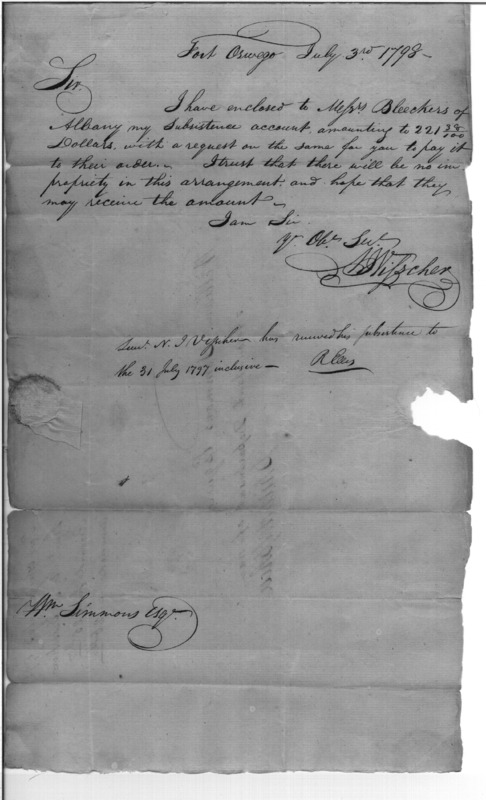 Fort Oswego July 3rd 1798
Sir.
I have enclosed to Messrs Bleeckers of
Albany my Subsistence account, amounting to 221 38/100
Dollars, with a request on the same for you to pay it
to their order. – I trust that there will be no im
propriety in this arrangement, and hope that they
may receive the amount –
I am Sir.
Yr. Obt. Sert.
Visscher
Lieut. N. J. Visscher has received his subsistence to
the 31 July 1797 inclusive –
Wm Simmons Esqr.